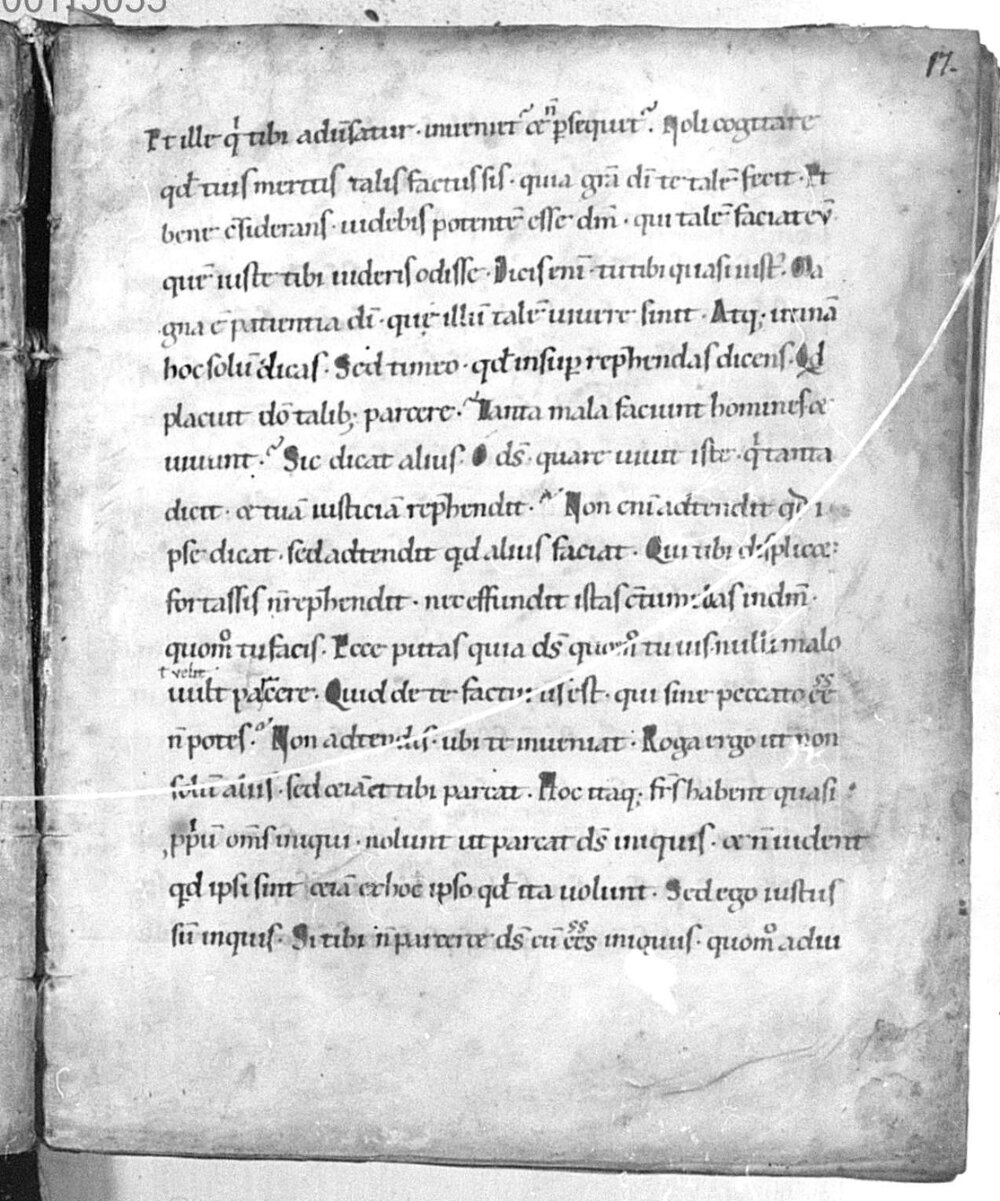 00115055
17.
Et ille q́ tibi adūsatur · inueniet᷉ & n̄ p̱sequit᷉. Noli cogitare
qd̄ tuis meritis talis factus sis · quia grā dī te talē fecit · Et
bene c̄siderans · uidebis potentē esse dm̄ · qui talē faciat eū
quē iuste tibi uideris odisse · Dicis enī · tu tibi quasi iust᷒. Ma
gna ē patientia dī · quę illū talē uiuere sinit · Atq; utinā
hoc solū dicas · Sed timeo · qd̄ insup̱ rep̄hendas dicens · Qd̄
placuit dō talib; parcere · Tanta mala faciunt homines &
uiuunt · Sic dicat alius · O ds̄ · quare uiuit iste · q́ tanta
dicit · & tuā iusticiā rep̄hendit · Non enī adtendit qd̄ i
pse dicat · sed adtendit qd̄ alius faciat · Qui tibi displic&:
fortassis n̄ rep̄hendit · nec effundit istas c̄tumelias in dm̄ ·
quom̊ tu facis · Ecce putas quia ds̄ quom̊ tu uis nulli malo
ł velit
uult parcere · Quid de te factur us est · qui sine peccato ēē
n̄ potes · Non adtendis · ubi te inueniat · Roga ergo ut non
solū alius · sed &iā et tibi parcat · Hoc itaq; frs̄ habent quasi
p̱ṕū oms̄ iniqui · nolunt ut parcat ds̄ iniquis · & n̄ uident
qd̄ ipsi sint &iā ex hoc ipso qd̄ ita uolunt · Sed ego iustus
sū inquis · Si tibi n̄ parcer& ds̄ cū ēēs iniquus · quom̊ adui